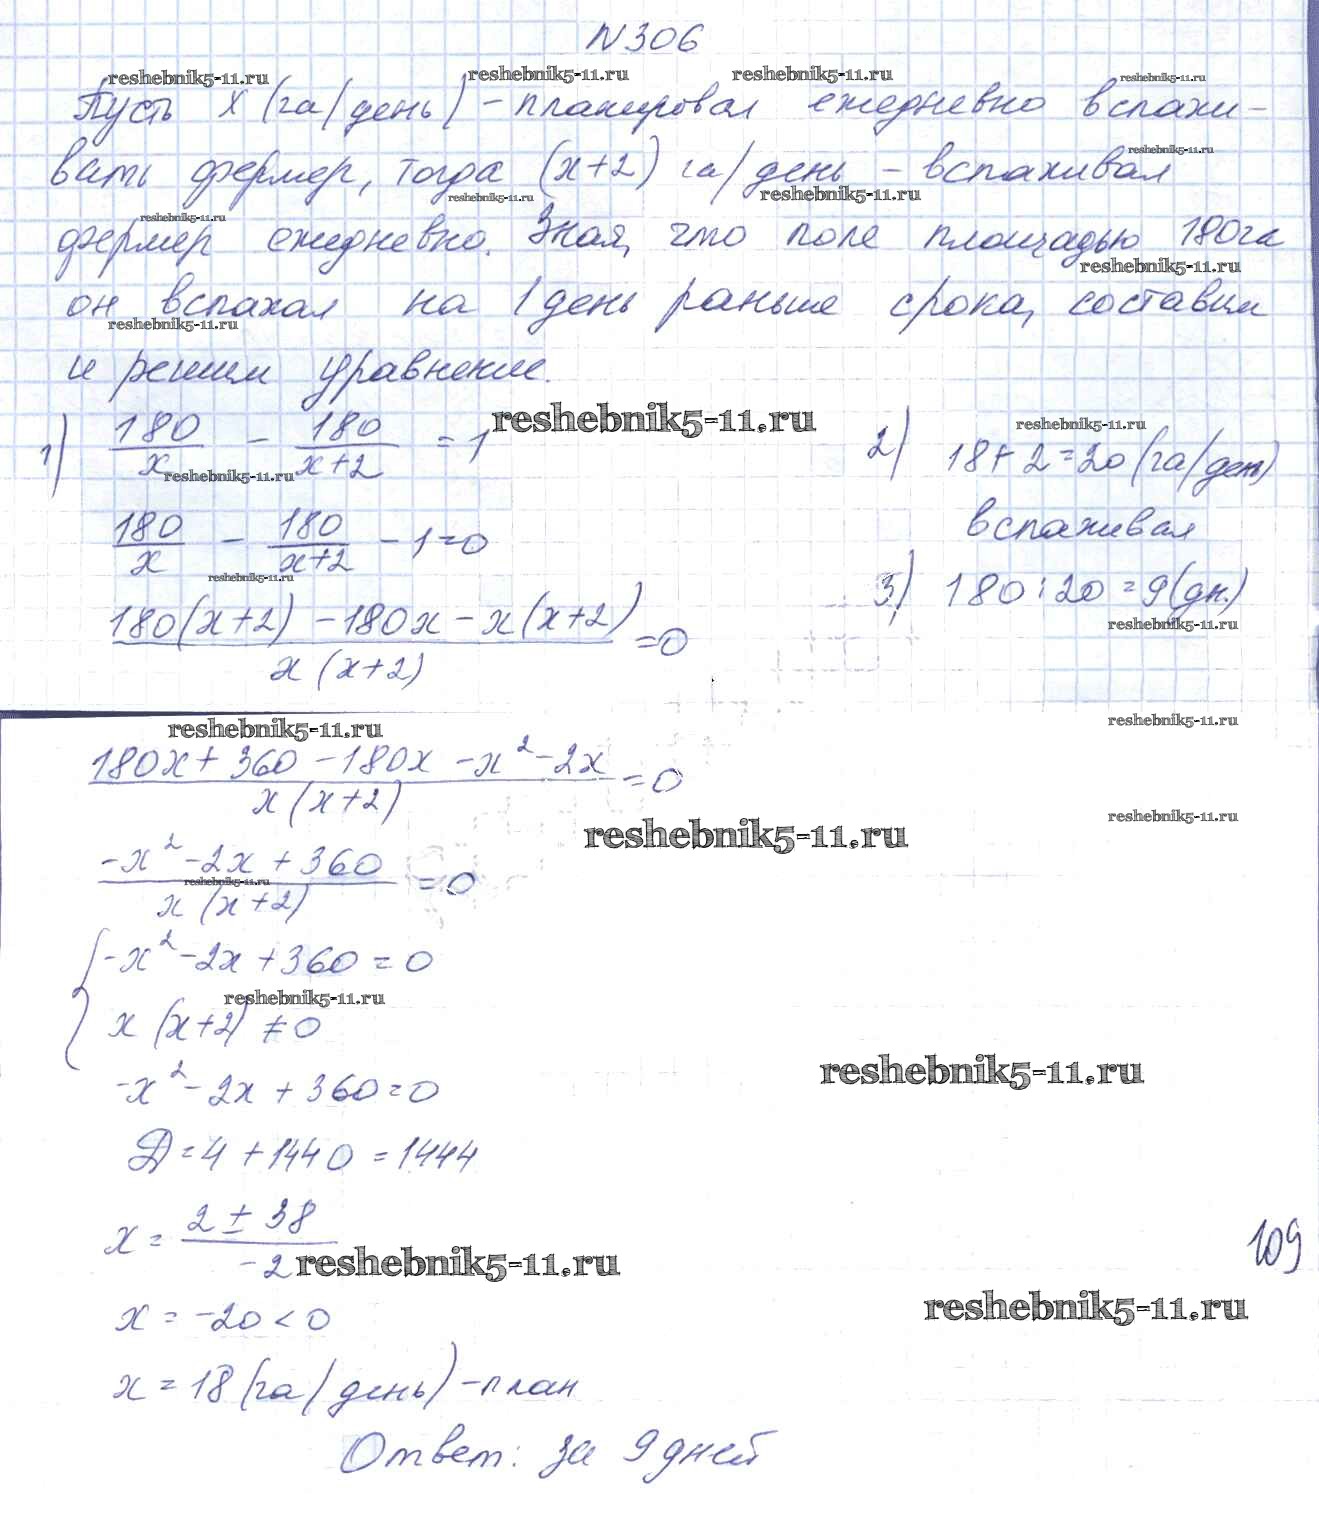 N306
reshebnik5-11.ru reshebnik5-11.ru reshebnik5-11.ru reshebnik5-11.ru
Пусть x (га/день) - планировал ежедневно вспахи-
reshebnik5-11.ru
вать фермер, тогда (x+2) га/день - вспахивал
reshebnik5-11.ru reshebnik5-11.ru reshebnik5-11.ru
фермер ежедневно. Зная, что поле площадью 180га
reshebnik5-11.ru
он вспахал на 1 день раньше срока, составим
reshebnik5-11.ru
и решим уравнение.
reshebnik5-11.ru reshebnik5-11.ru
1) 180/x - 180/(x+2) = 1
reshebnik5-11.ru
180/x - 180/(x+2) - 1 = 0
reshebnik5-11.ru
(180(x+2) - 180x - x(x+2))/(x(x+2)) = 0
2) 18+2=20 (га/день)
вспахивал
3) 180:20=9(дн.)
reshebnik5-11.ru
reshebnik5-11.ru reshebnik5-11.ru
(180x+360-180x-x²-2x)/(x(x+2)) = 0
reshebnik5-11.ru
reshebnik5-11.ru
(-x²-2x+360)/(x(x+2)) = 0
reshebnik5-11.ru
{ -x²-2x+360=0
reshebnik5-11.ru
x(x+2)≠0
reshebnik5-11.ru
-x²-2x+360=0
Д=4+1440=1444
x = (2±38)/(-2)
109
reshebnik5-11.ru
reshebnik5-11.ru
x=-20<0
x=18(га/день)-план
Ответ: за 9 дней